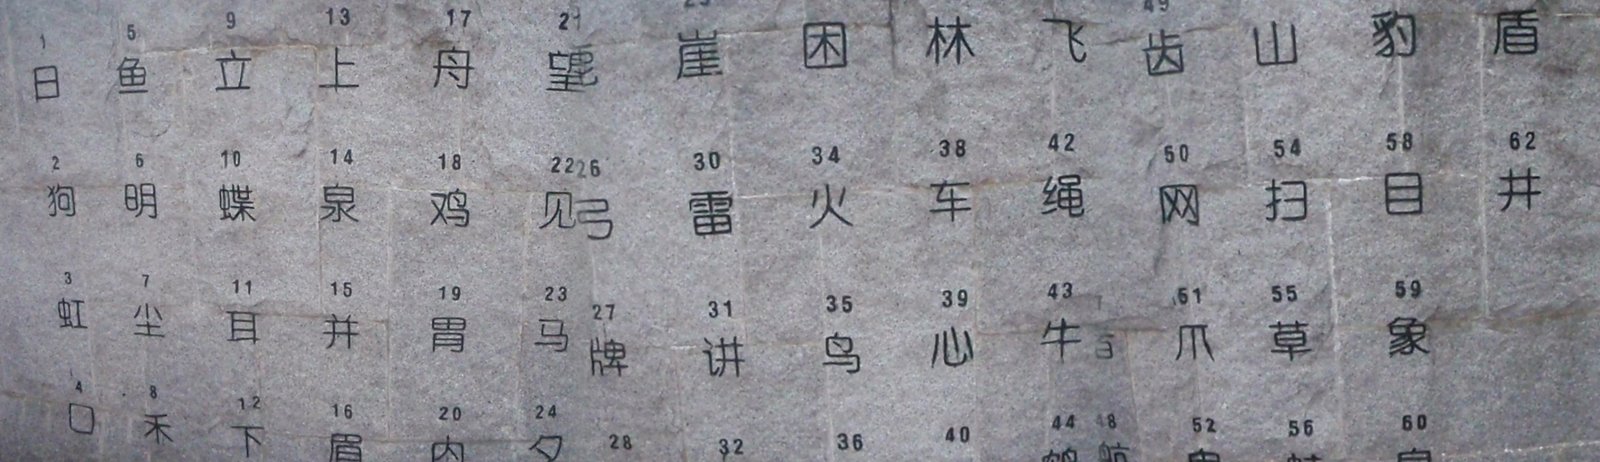 1 5 9 13 17 21 49
日 鱼 立 上 舟 望 崖 困 林 飞 齿 山 豹 盾
2 6 10 14 18 22 26 30 34 38 42 50 54 58 62
狗 明 蝶 泉 鸡 见 弓 雷 火 车 绳 网 扫 目 井
3 7 11 15 19 23 27 31 35 39 43 51 55 59
虹 尘 耳 并 胃 马 牌 讲 鸟 心 牛 爪 草 象
4 8 12 16 20 24 28 32 36 40 44 48 52 56 60
口 禾 下 眉 内 夕